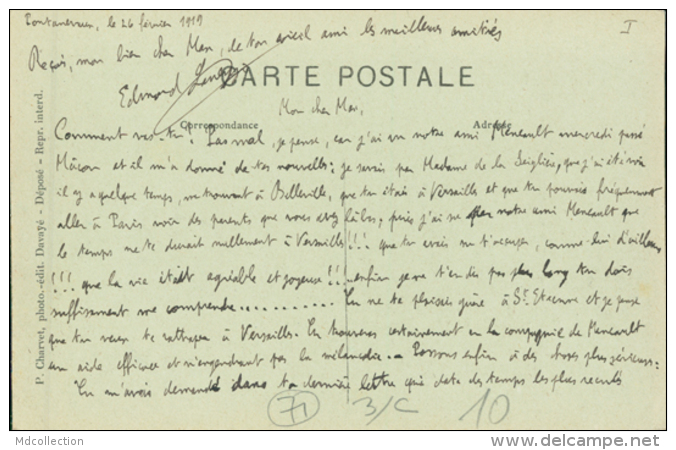 Pontanevaux, le 26 février 1919
I
Reçois, mon bien cher Max, de ton vieil ami les meilleures amitiés
Edmond
CARTE POSTALE
Mon cher Max,
Correspondance
Adresse
Comment vas-tu ? Pas mal, je pense, car j'ai vu notre ami Meneault mercredi passé
Mâcon et il m'a donné de tes nouvelles : je savais par Madame de la que j'ai été voir
il y a quelque temps, me trouvant à Belleville, que tu étais à Versailles et que tu pouvais fréquemment
aller à Paris voir des parents que vous avez puis j'ai su par notre ami Meneault que
le temps ne te durait nullement à Versailles !!! que tu avais su t'occuper, comme lui d'ailleurs
!!! que la vie était agréable et joyeuse !!! enfin je ne t'en dis pas plus long tu dois
suffisamment me comprendre..........Tu ne te plaisais guère à St Etienne et je pense
que tu veux te rattraper à Versailles. Tu trouveras certainement en la compagnie de Meneault
un aide efficace et n'engendrant pas la mélancolie. - Passons enfin à des choses plus sérieuses :
Tu m'avais demandé dans ta dernière lettre qui date des temps les plus reculés
P. Charvet, photo.-édit. Davayé - Déposé - Repr. interd.
71
3/C
10
Mdcollection
www.delcampe.net